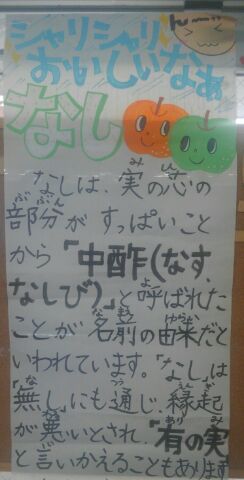 んー
シャリシャリ
おいしいなぁ
なし
なしは、実の芯の
部分がすっぱいこと
から「中酢(なす、
なしび)」と呼ばれた
ことが名前の由来だと
いわれています。「なし」は
「無し」にも通じ、縁起
が悪いとされ、「有の実」
と言いかえることもあります